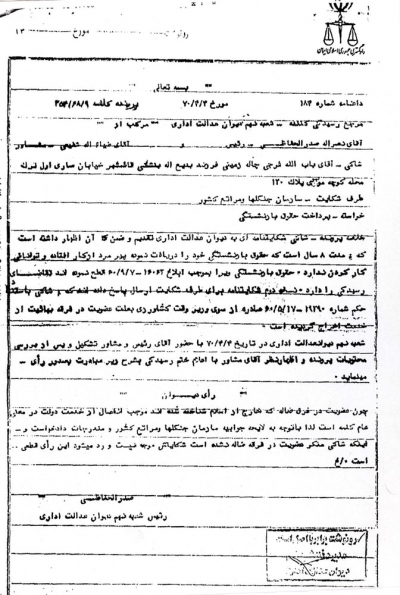 دادگستری جمهوری اسلامی ایران
مورخ ۱۳
بسمه تعالی
دادنامه شماره ۱۸۴ مورخ ۷۰/۴/۴ پرونده کلاسه ۳۵۴/۶۸/۹
مرجع رسیدگی کننده – شعبه نهم دیوان عدالت اداری – مرکب از
آقای – رئیس و آقای – مشاور
شاکی – آقای باب الله فرجی جماله زمینی فرزند بدیع اله بنشانی قائمشهر خیابان ساری اول ترک
محله کوچه پلاک ۱۲۰
طرف شکایت – سازمان جنگلها و مراتع کشور
خواسته – پرداخت حقوق بازنشستگی
خلاصه پرونده – شاکی شکایتنامه ای به دیوان عدالت اداری تقدیم و ضمن آن اظهار داشته است
که مدت ۸ سال است که حقوق بازنشستگی خود را دریافت ننموده پیر مرد از کار افتاده و توانائی
کار کردن ندارد حقوق بازنشستگی ویرا بموجب ابلاغ ۱۶۰۶۲ – ۶۰/۹/۷ قطع نموده اند تقاضای
رسیدگی را دارد نسخه دوم شکایتنامه برای طرف شکایت ارسال پاسخ داده اند که شاکی باستناد
حکم شماره ۱۹۲۹۰ – ۶۰/۵/۱۷ صادره از سوی وزیر وقت کشاورزی بعلت عضویت در فرقه بهائیت از
خدمت اخراج گردیده است
شعبه نهم دیوان عدالت اداری در تاریخ ۷۰/۴/۴ با حضور آقای رئیس و مشاور تشکیل و پس از بررسی
محتویات پرونده و اظهارنظر آقای مشاور با اعلام ختم رسیدگی بشرح زیر مبادرت بصدور رأی –
مینماید
رأی دیوان
چون عضویت در فرق ضاله که خارج از اسلام شناخته شده اند موجب انفصال از خدمت دولت در معنای
عام کلمه است لذا باتوجه به لایحه جوابیه سازمان جنگلها و مراتع کشور و مندرجات دادخواست و –
اینکه شاکی منکر عضویت در فرقه ضاله نشده است شکایتش موجه نیست و رد میشود این رأی قطعی
است
صدرالحفاظی
رئیس شعبه نهم دیوان عدالت اداری
رونوشت برابر با اصل است